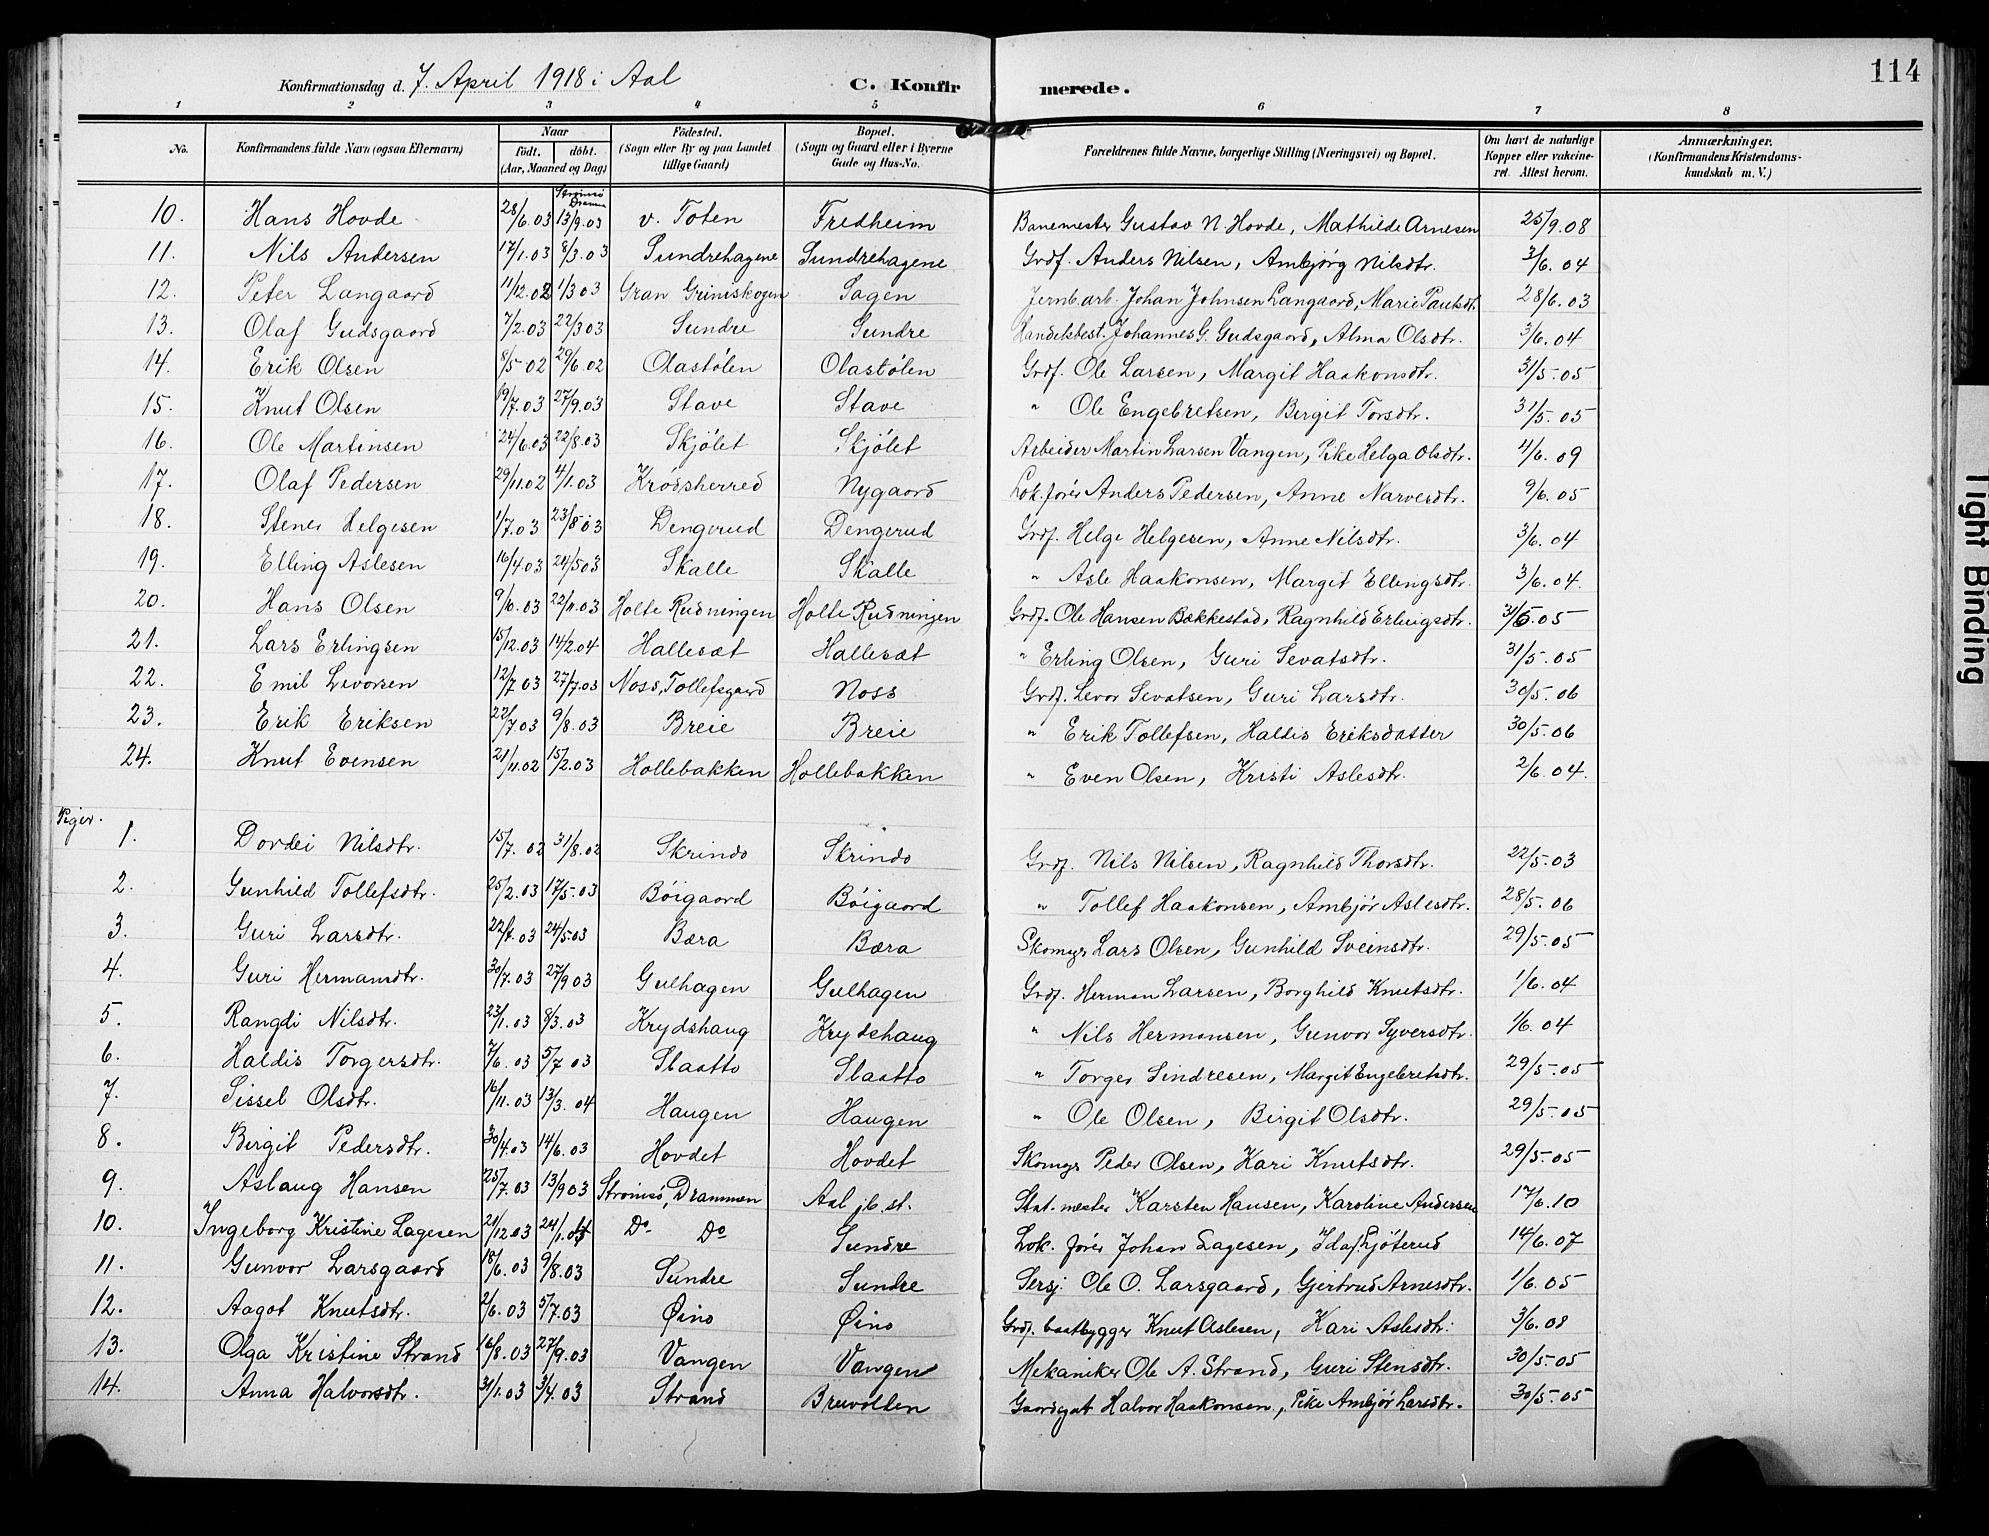 114
Konfirmationsdag d. 7. April 1918 i Aal C. Konfirmerede.
1 2 3 4 5 6 7 8
No. Konfirmandens fulde Navn (ogsaa Efternavn) Naar födt. döbt. (Aar, Maaned og Dag) Födested. (Sogn eller By og paa Landet tillige Gaard) Bopæl. (Sogn og Gaard eller i Byerne Gade og Hus-No. Forældrenes fulde Navne, borgerlige Stilling (Næringsvei) og Bopæl. Om havt de naturlige Kopper eller vakcineret. Attest herom. Anmærkninger. (Konfirmandens Kristendomskundskab m. V.)
10. Hans Hovde 28/6.03 Strømsø Dramm 13/9.03 v. Toten Fredheim Banemester Gustav N. Hovde, Mathilde Arnesen 25/9.08
11. Nils Andersen 17/1.03 8/3.03 Sundrehagene Sundrehagene Grdf. Anders Nilsen, Ambjørg Nilsdtr. 3/6.04
12. Peter Langaard 11/12.02 1/3 03 Gran Grimskogen Sagen Jernb. arb. Johan Johnsen Langaard, Marie Paulsdt. 28/6.03
13. Olaf Gudsgaard 7/2.03 22/3 03 Sundre Sundre Handelsbest. Johannes G. Gudsgaard, Alma Olsdtr. 3/6.04
14. Erik Olsen 8/5-02 29/6.02 Olastølen Olastølen Grdf. Ole Larsen, Margit Haakonsdtr. 31/5-05
15. Knut Olsen 19/7.03 27/9.03 Stave Stave " Ole Engebretsen, Birgit Torsdtr. 31/5.05
16. Ole Martinsen 24/6.03 22/8.03 Skjølet Skjølet Arbeider Martin Larsen Vangen, Pike Helga Olsdtr. 4/6.09
17. Olaf Pedersen 29/11.02 4/1.03 Krødsherred Nygaard Lok. fører Anders Pedersen, Anne Narvesdtr. 9/6.05
18. Stener Helgesen 1/7.03 23/8-03 Dengerud Dengerud Grdf. Helge Helgesen, Anne Nilsdtr. 3/6.04
19. Elling Aslesen 16/4.03 24/5 03 Skalle Skalle " Asle Haakonsen, Margit Ellingsdtr. 3/6.04.
20. Hans Olsen 9/6.03 22/11.03 Holte Rudningen Holte Rudningen Grdf. Ole Hansen Bakkestad, Ragnhild Erlingsdtr. 31/5.05
21. Lars Erlingsen 15/12.03 14/2.04 Hallesæt Hallesæt " Erling Olsen, Guri Sevatsdtr. 31/5-05
22. Emil Levorsen 12/7 03 27/7.03 Noss, Tollefsgaard Noss Grdf. Levor Sevatsen, Guri Larsdtr. 30/5-06
23. Erik Eriksen 22/7.03 9/8.03 Breie Breie " Erik Tollefsen, Haldis Eriksdatter 30/5-06
24. Knut Evensen 21/11.02 15/2.03 Hollebakken Hollebakken " Even Olsen, Kristi Aslesdtr. 2/6.04.
Piger.
1. Dordei Nilsdtr. 15/7.02 31/8.02 Skrindo Skrindo Grdf. Nils Nilsen, Ragnhild Thorsdtr. 22/5-03
2. Gunhild Tollefsdtr. 25/2.03 17/5-03 Bøigaard Bøigaard " Tollef Haakonsen, Ambjør Aslesdtr. 28/5-06
3. Guri Larsdtr. 22/4.03 24/5.03 Bæra Bæra Skomgr Lars Olsen, Gunhild Sveinsdtr. 29/5-05
4. Guri Hermansdtr. 30/7.03 27/9 03 Gulhagen Gulhagen Grdf. Herman Larsen, Borghild Knutsdtr. 1/6.04
5. Rangdi Nilsdtr. 23/1.03 8/3.03 Krydshaug Krydshaug " Nils Hermansen, Gunvor Syversdtr. 1/6.04
6. Haldis Torgersdtr. 7/6.03 5/7 03 Slaatto Slaatto " Torger Sindresen, Margit Engebretsdtr. 29/5-05
7. Sissel Olsdtr. 16/11.03 13/3.04 Haugen Haugen " Ole Olsen, Birgit Olsdtr. 29/5-05
8. Birgit Pedersdtr. 30/4.03 14/6.03 Hovdet Hovdet Skomgr Peder Olsen, Kari Knutsdtr. 29/5-05
9. Aslaug Hansen 25/7.03 13/9 03 Strømsø, Drammen Aal jb. st. Stat. mester Karsten Hansen, Karoline Andersen 17/6.10
10. Ingeborg Kristine Lagesen 21/12.03 24/1.04 Do Do Sundre Lok. fører Johan Lagesen, Ida Skjøterud 14/6.07
11. Gunvor Larsgaard 18/6.03 9/8.03 Sundre Sundre Sersj. Ole O. Larsgaard, Gjertrud Arnesdtr. 1/6.05
12. Aagot Knutsdtr. 2/6.03 5/7.03 Øino Øino Grdf. baatbygger Knut Aslesen, Kari Aslesdtr. 3/6.08
13. Olga Kristine Strand 16/8.03 27/9.03 Vangen Vangen Mekaniker Ole A. Strand, Guri Stensdtr. 30/5-05
14. Anna Halvorsdtr. 31/1.03 3/4.03 Strand Bruvolten Gaardsgut Halvor Haakonsen, Pike Ambjør Larsdtr. 30/5-05
Tight Binding